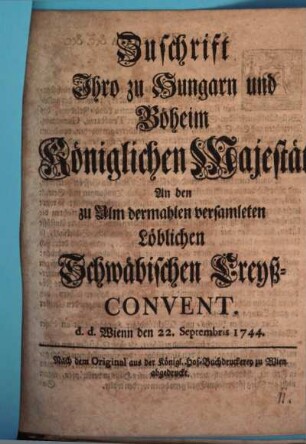 Zuschrifft
Ihro zu Hungarn und
Böheim
Königlichen Majestät
An den
zu Ulm dermahlen versamleten
Löblichen
Schwäbischen Creyß-
CONVENT.
d. d. Wienn den 22. Septembris 1744.
Nach dem Original aus der Königl. Hof-Buchdruckerey zu Wien
abgedruckt.
11.